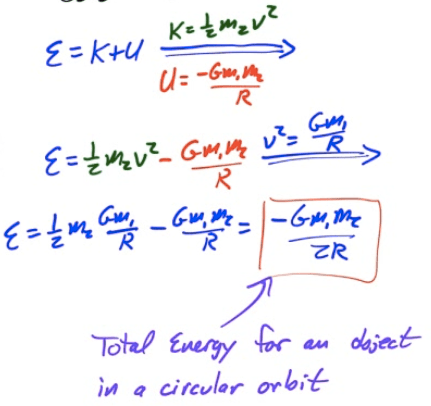 K = ½ m₂ v²
ε = K + U
U = -Gm₁m₂/R
ε = ½ m₂ v² - Gm₁m₂/R
v² = Gm₁/R
ε = ½ m₂ Gm₁/R - Gm₁m₂/R = -Gm₁m₂/2R
Total Energy for an object
in a circular orbit